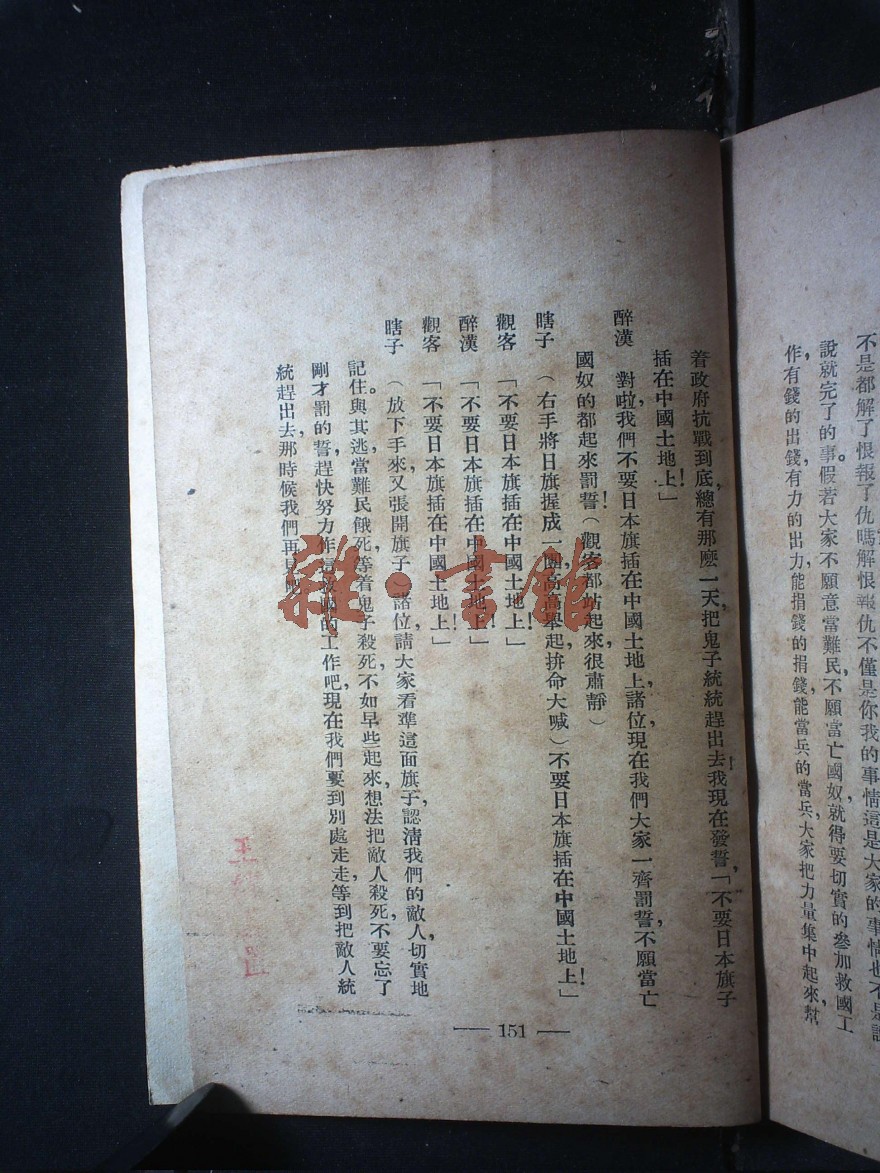 不是都解了恨報了仇嗎解恨報仇不僅是你我的事情這是大家的事情也不是說
說就完了的事。假若大家不願意當難民，不願當亡國奴，就得要切實的參加救國工
作，有錢的出錢，有力的出力，能捐錢的捐錢，能當兵的當兵，大家把力量集中起來，幫
着政府抗戰到底，總有那麽一天，把鬼子統統趕出去！我現在發誓，「不要日本旗子
插在中國土地上！」
醉漢　對啦，我們不要日本旗插在中國土地上，諸位，現在我們大家一齊罰誓，不願當亡
國奴的都起來罰誓！（觀客都站起來，很肅靜）
瞎子　（右手將日旗握成一團高高舉起，拚命大喊）不要日本旗插在中國土地上！」
觀客　「不要日本旗插在中國土地上！」
醉漢　「不要日本旗插在中國土地上！」
觀客　「不要日本旗插在中國土地上！」
瞎子　（放下手來，又張開旗子）諸位，請大家看準這面旗子，認淸我們的敵人，切實地
記住。與其逃當難民餓死，等着鬼子殺死，不如早些起來，想法把敵人殺死，不要忘了
剛才罰的誓，趕快努力作這救國的工作吧，現在我們要到別處走走，等到把敵人統
統趕出去，那時候我們再見吧
— 151 —
雜·書館